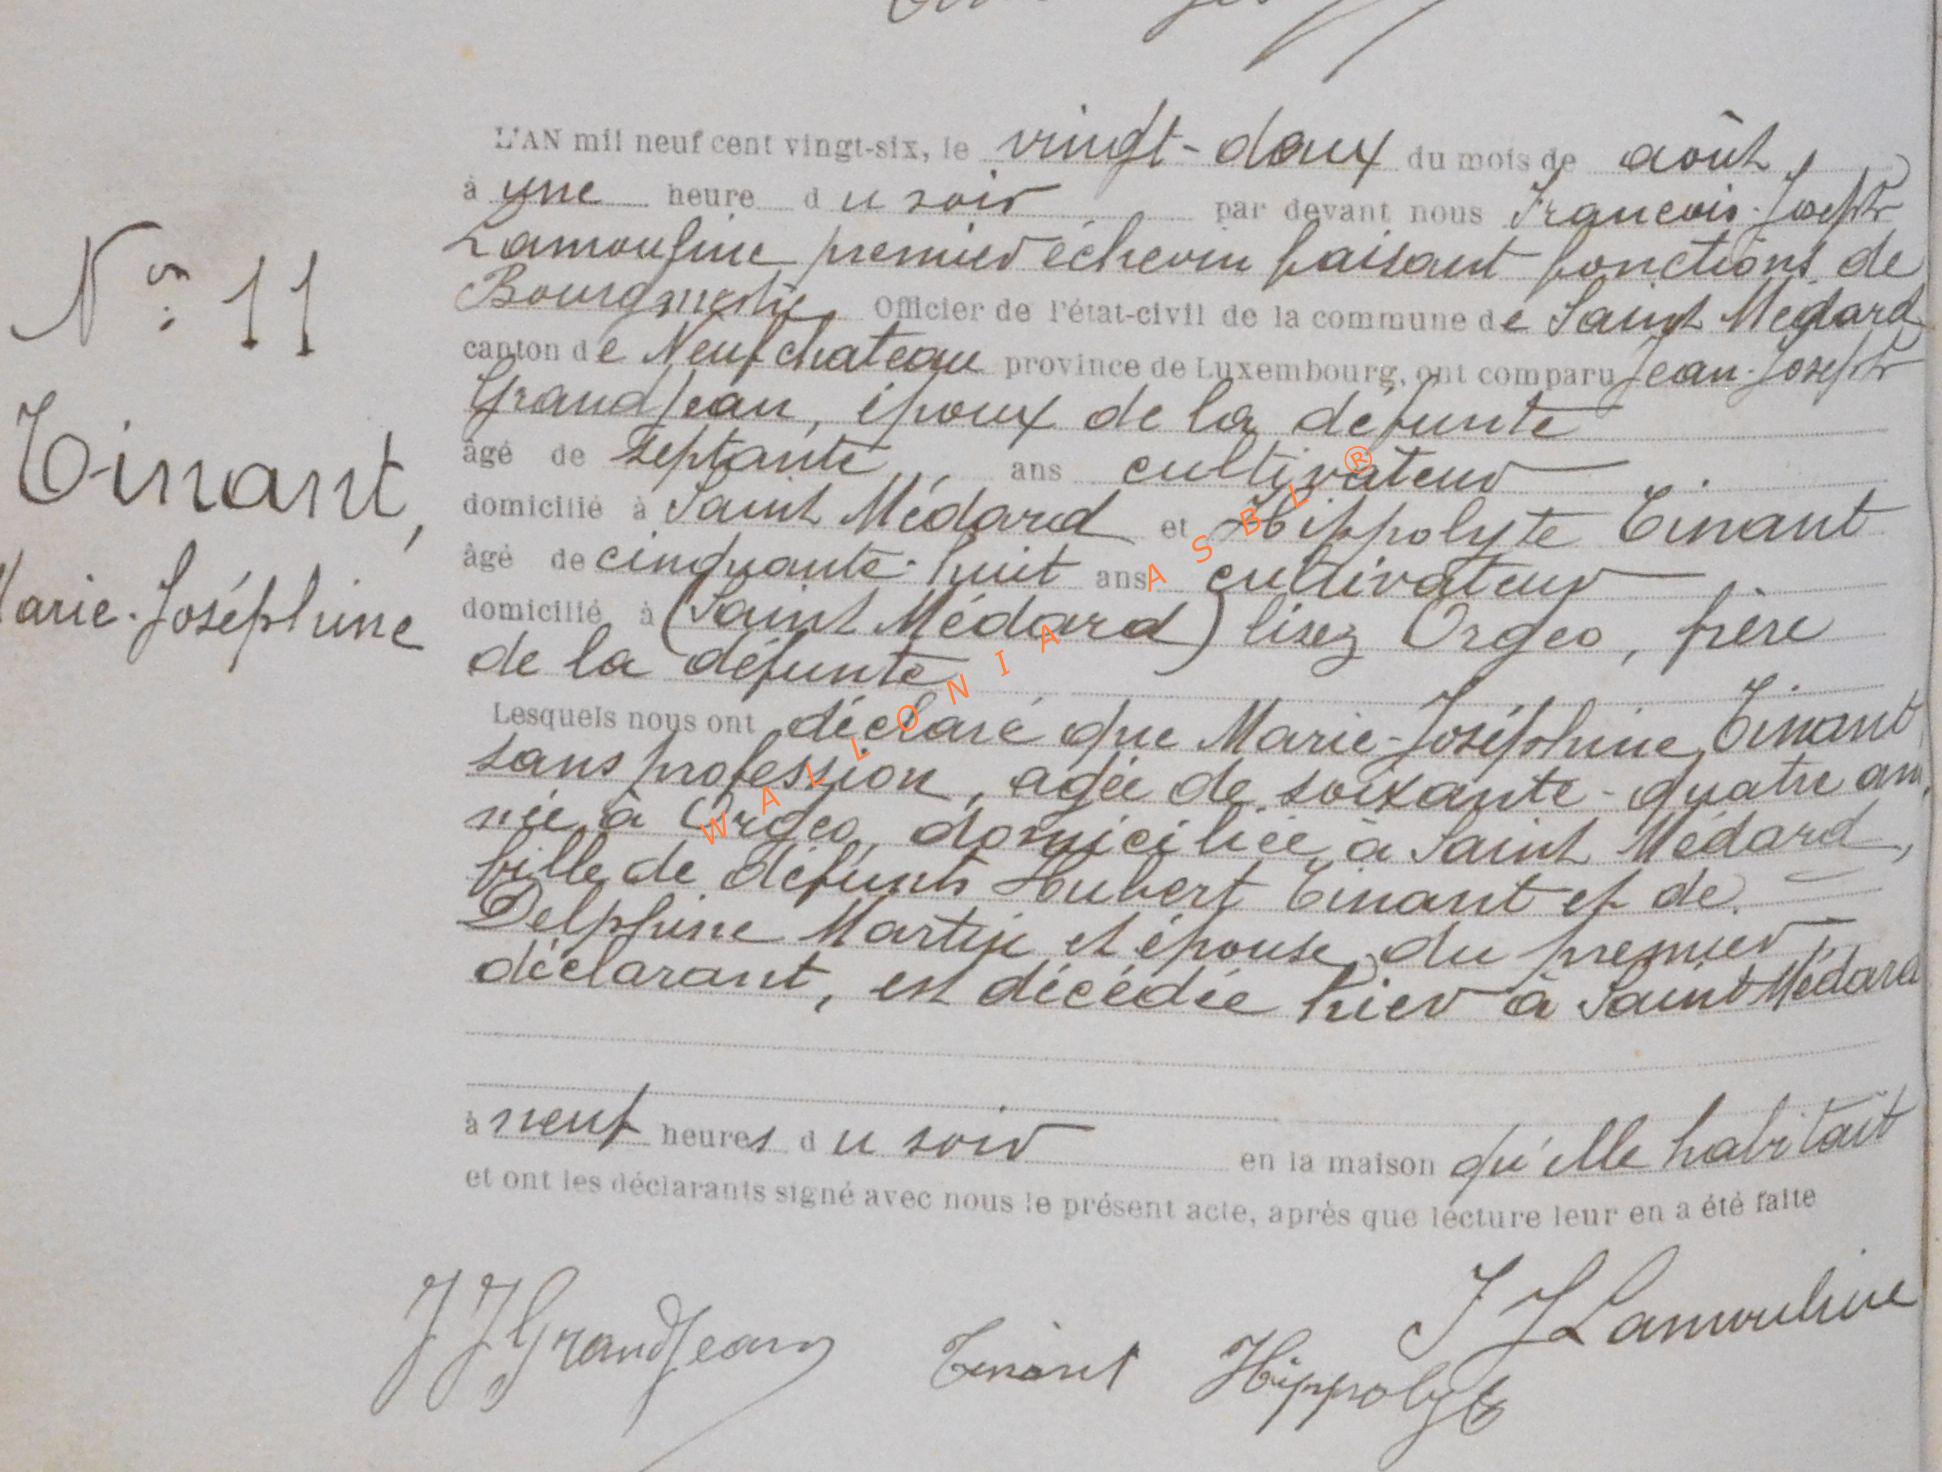 L'AN mil neuf cent vingt-six, le vingt-deux du mois de août
à une heure du soir par devant nous François-Joseph
Lamouline premier échevin faisant fonctions de
Bourgmestre Officier de l'état-civil de la commune de Saint Médard
canton de Neufchateau province de Luxembourg, ont comparu Jean-Joseph
Grandjean, époux de la défunte
âgé de septante ans cultivateur
domicilié à Saint Médard et Hippolyte Tinant
âgé de cinquante-huit ans cultivateur
domicilié à (Saint Médard) lisez Orgeo, frère
de la défunte
Lesquels nous ont déclaré que Marie-Joséphine Tinant,
sans profession, agée de soixante-quatre ans,
née à Orgeo, domiciliée à Saint Médard,
fille de défunts Hubert Tinant et de
Delphine Martin et épouse du premier
déclarant, est décédée hier à Saint Médard
à neuf heures du soir en la maison qu'elle habitait
et ont les déclarants signé avec nous le présent acte, après que lecture leur en a été faite
N° 11
Tinant,
Marie-Joséphine
J J Grandjean Tinant Hippolyte J J Lamouline
WALLONIA ASBL ®